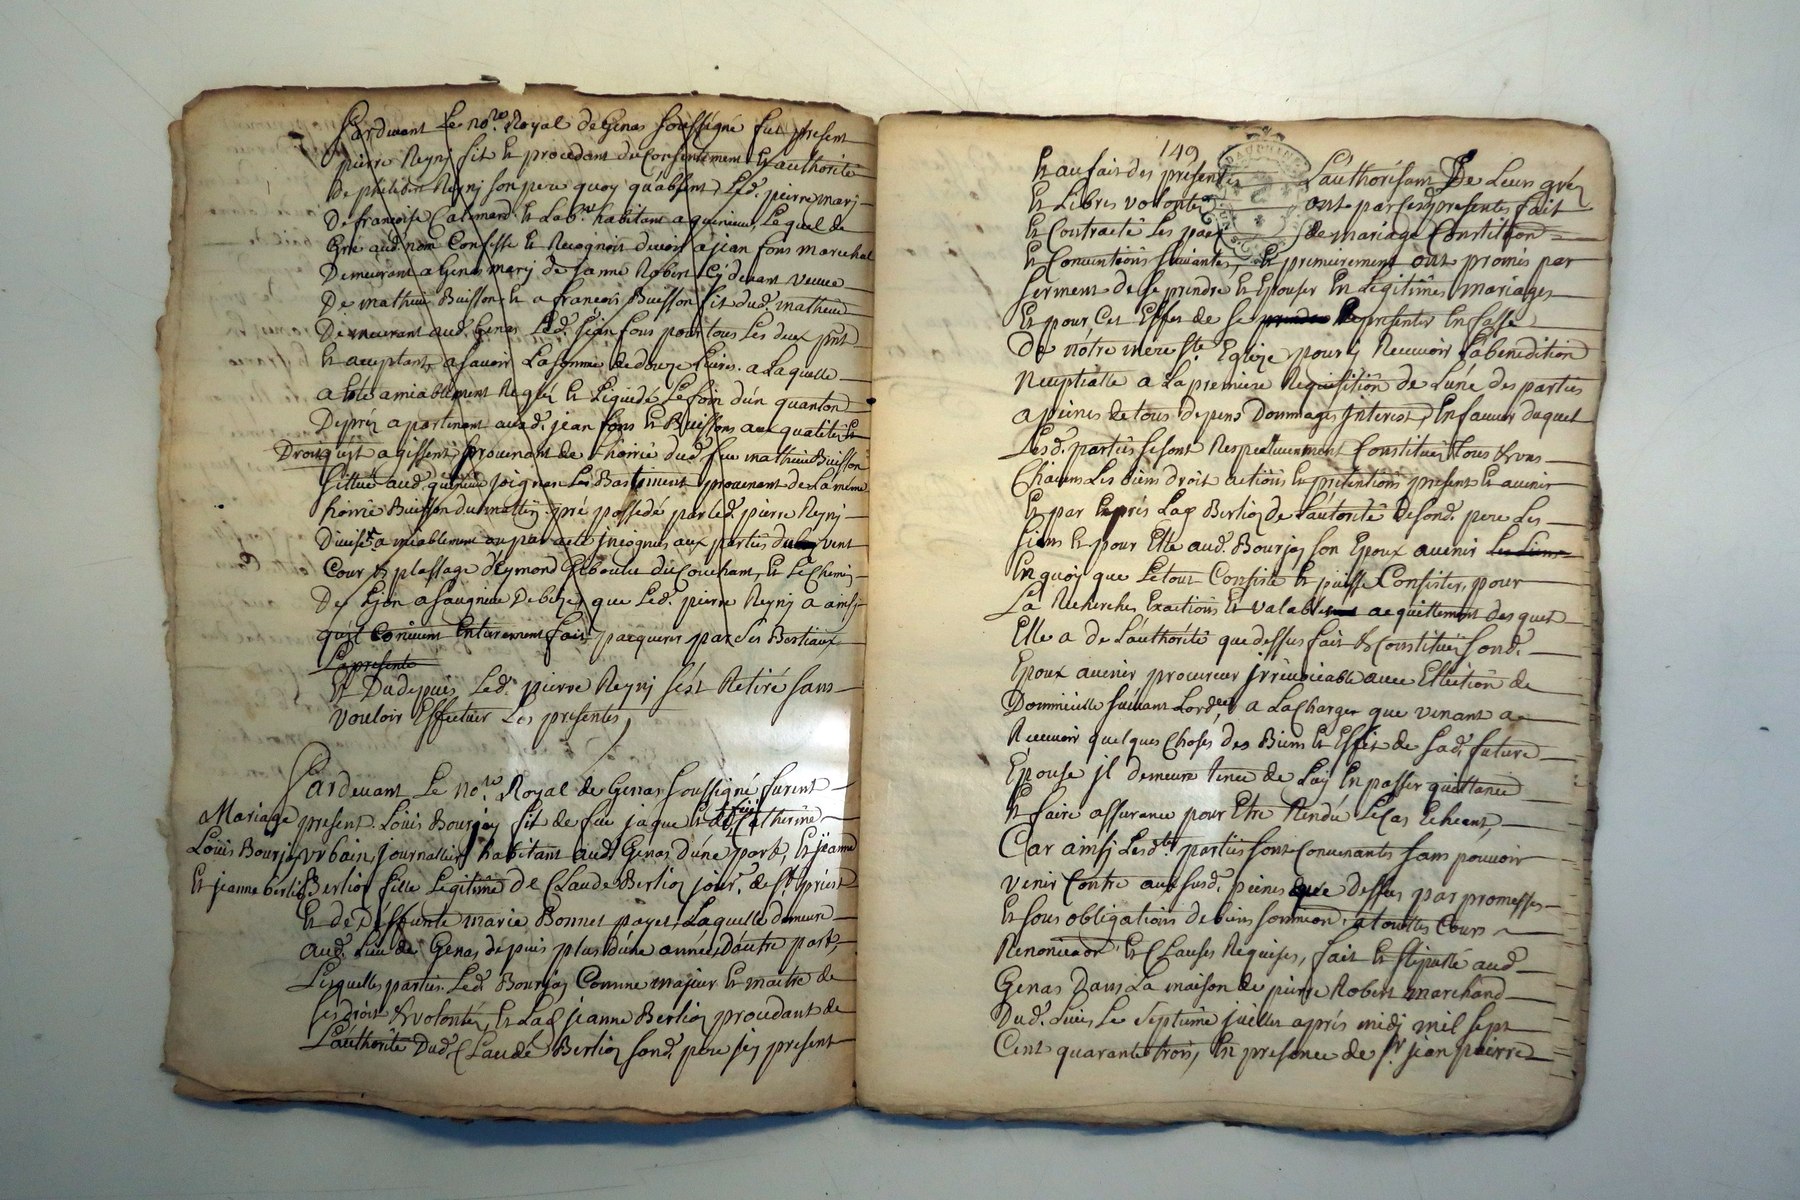 Pardevant Le no.re Royal de Genas soussigné fut present
pierre Reynj fit Et procedant du Consentement Et authorité
De philibert Reynj son pere quoy qu'absent, Led. pierre marj
De françoise Calemard Et Lab.r habitant a quinieux, Lequel de
Gré aud. nom Confesse Et Recognoit devoir a jean fons marechal
Demeurant a Genas marj de janne Robert Cÿ devant veuve
De mathieu Buisson Et a francois Buisson fit dud. mathieu
Demeurant aud. Genas Led. jean fons pour tous Les deux pnt
Et acceptant, a savoir La somme de douze Livres a Laquelle
a été amiablement Reglé Et Liquidé Le foin d'un quanton
De pré apartenant aud. jean fons Et Buissons aux qualités Et
Droit qu'ist agissent, provenant de L'hoirie dud. feu mathieu Buisson
sittué aud. quinieu joignant Les Bastiment provenent de La meme
hoirie Buisson du mattin, pré possedé par led. pierre Reynj
Divisé amiablement ou par acte incognus aux parties du vent
Cour & plassage d'Eymond Geboulet du Couchant, Et Le Chemin
De Lyon a de bize, que Led. pierre Reynj a ainsj
qu'il Convient Entierement fait pacquerer par ses Bestiaux
La presente
Et Dudepuis Led. pierre Reynj s'est Retiré sans
vouloir Effectuer Les presentes,
Pardevant Le no.re Royal de Genas soussigné furent
Mariage
Louis Bourjay
Et jeanne berlioz
present Louis Bourjay fit de feu jaque Et de feüe Catherine
Urbain, journallier habitant aud. Genas d'une part, Et jeanne
Berlioz fille Legitime de Claude Berlioz jour.r de St priest
Et de Deffunte marie Bonnet payet, Laquelle demeure
aud. Lieu de Genas depuis plus d'une année d'autre part,
Lesquelles parties Led. Bourjay Comme majeur Et maitre de
ses droit & volontés, Et Lad. jeanne Berlioz procedant de
L'authorité Dud. Claude Berlioz sond. pere jcy present
149
Et au fait des presentes L'authorisant De Leurs gréz
Et Libres volontés ont par Ces presentes fait
Et Contracté Les pact de mariage Constitution
Et Conventions suivantes, Et premierement ont promis par
serment de se prendre Et Epouser En Legitimes mariages
Et pour Cet Effet de se Representer En face
De nôtre mere Ste Eglize pour y Recevoir La benedition
Neuptialle a La premiere Requisition de L'une des parties
a peines de tous depens Dommages interest, En faveur duquel
Lesd. parties se sont Respectivement Constitués tous Et uns
Chacuns Les biens droit actions Et pretentions present Et avenir
Et par Exprés Lad. Berlioz de L'autorité de sond. pere Les
siens Et pour Elle aud. Bourjay son Epoux avenir
En quoy que Letout Consiste Et puisse Consister, pour
La Recherches Exactions Et valable acquittement desquel
Elle a de L'authorité que dessus fait & Constitué sond.
Epoux avenir procureur irrevocable avec Ellection de
Dommicille suivant L'ord.ce, a La Charge que venant a
Recevoir quelques Choses des Biens Et Effet de sad. future
Epouse il demeure tenu de Luy En passer quittance
Et faire assurance pour Etre Rendu Le Cas Echeant,
Car ainsj Lesd.tes parties sont Convenantes sans pouvoir
venir Contre aux susd. peines que dessus par promesses
Et sous obligations de biens soumission a touttes Cours
Renonciation Et Clauses Requises, fait Et stipullé aud.
Genas Dans La maison de pierre Robert marchand
Dud. Lieu Le septieme juillet aprés midj mil sept
Cent quarante trois, En presence de s.r jean pierre